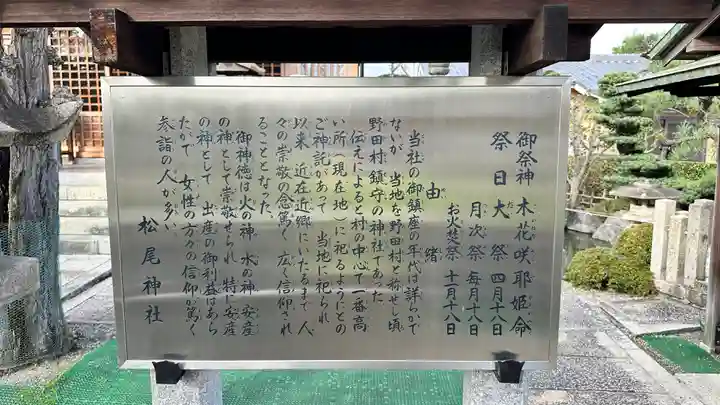 御祭神 木花咲耶姫命
祭日 大祭 四月十八日
月次祭 毎月十八日
お火焚祭 十一月十八日
由緒
当社の御鎮座の年代は詳らかで
ないが 当地を野田村と称せし頃
野田村鎮守の神社であった
伝えによると村の中心で一番高
い所(現在地)に祀るようにとの
ご神託があって 当地に祀られ
以来 近在近郷にいたるまで 人
々の崇敬の念篤く 広く信仰され
ることとなった。
御神徳は火の神 水の神 安産
の神として崇敬せられ 特に安産
の神として 出産の御利益はあら
たかで 女性の方々の信仰が篤く
参詣の人が多い。
松尾神社